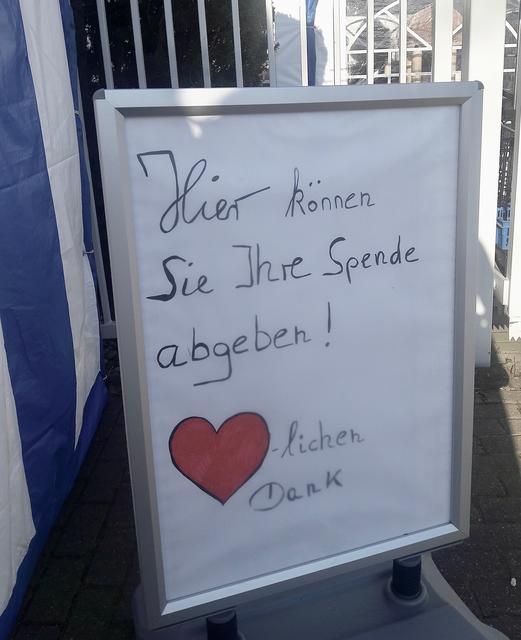 Hier können
Sie Ihre Spende
abgeben!
-lichen
Dank